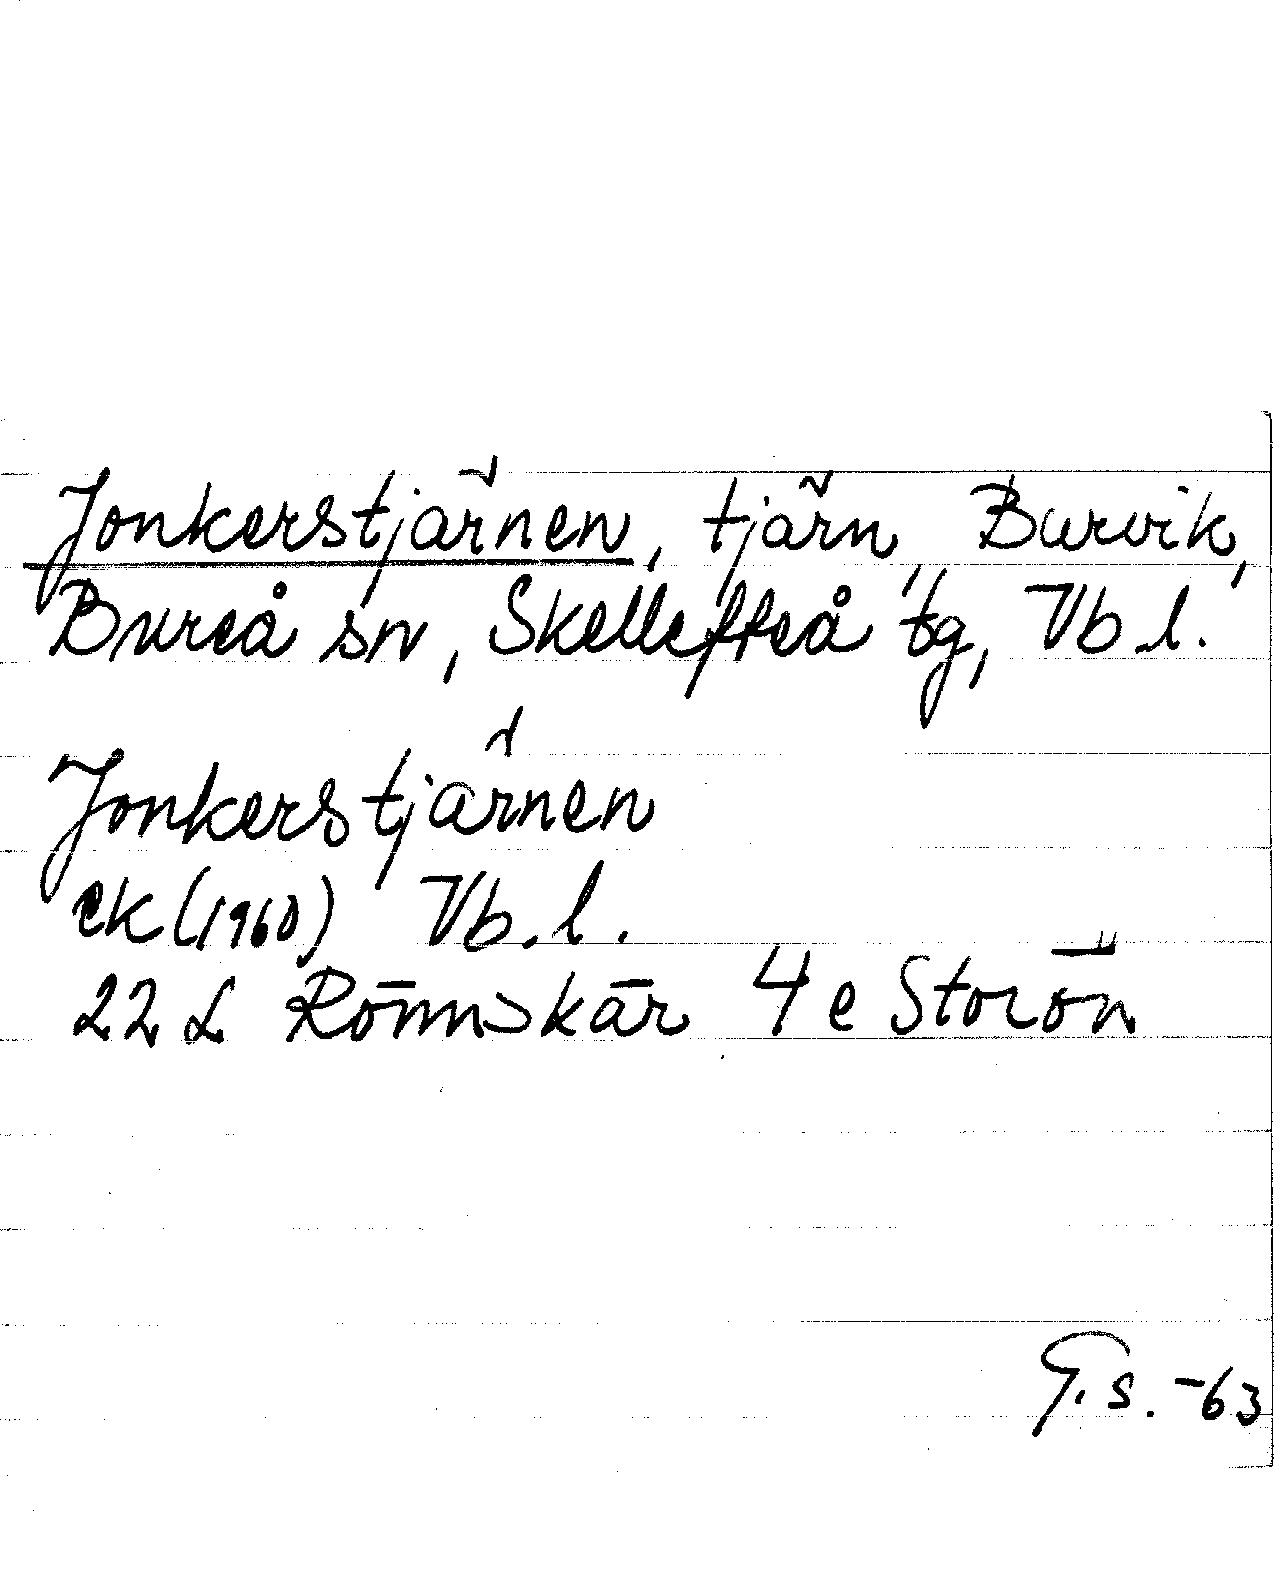 Jonkerstjärnen, tjärn, Burvik,
Bureå sn, Skellefteå tg, Vb l.
Jonkerstjärnen
ek (1960) Vb. l.
22 L Rönnskär 4 e Storön
G. s. -63